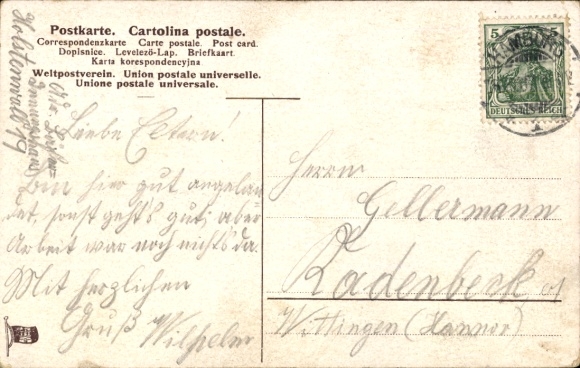 Postkarte. Cartolina postale.
Correspondenzkarte Carte postale. Post card.
Dopisnice. Levelező-Lap. Briefkaart.
Karta korespondencyjna
Weltpostverein. Union postale universelle.
Unione postale universale.
Holstenwall 19
Liebe Eltern!
Bin hier gut angelan
det, sonst geht's gut, aber
Arbeit war noch nichts da.
Mit herzlichen
Gruß Wilhelm
5
HAMBURG
DEUTSCHES REICH
1
Herrn
Gellermann
Radenbeck
Wittingen (Hannov)